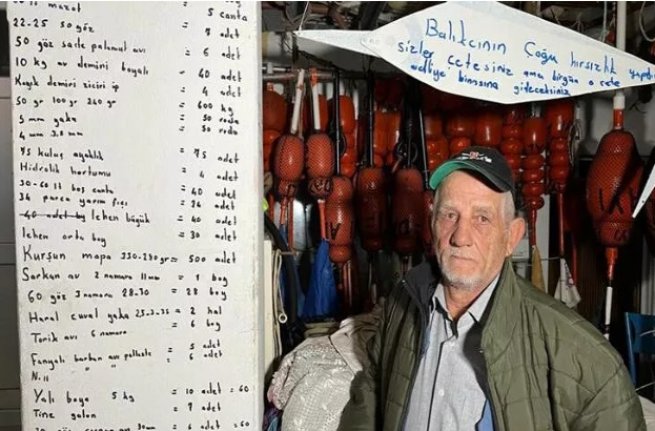 mazot = 5 canta
22-25 50 göz = 7 adet
50 göz sade palamut avı = 6 adet
10 kg av demini boyalı = 40 adet
Kayık demini zinciri ip = 4 adet
50 gr 100 gr 240 gr = 600 kg
5 mm yaka = 50 roda
4 mm 3,8 mm = 50 roda
75 kulaç ayaklık = 75 adet
Hidrolik hortumu = 4 adet
30-60 lt boş canta = 40 adet
34 parca yarım fıçı = 34 adet
40 adet leğen büyük = 40 adet
leğen orta boy = 30 adet
Kurşun mapa 230-280 gr = 500 adet
2 numara 11 mm = 8 boy
60 göz 3 numara 28-30 = 28 boy
Haral cuval yaka = 2 hal
Torik avı 6 numara = 6 boy
Fanyalı barbun avı = 5 adet
N. = 6 adet
Yalı boya 5 kg = 10 adet = 60
Tine galon = 7 adet
= 6 adet = 60
Balıkcının Çoğu hırsızlık
sizler Çetesiniz ama birgün o cete
adliye binasına gideceksiniz